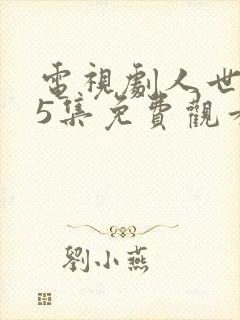 電視劇人世
5集免費觀
劉小燕